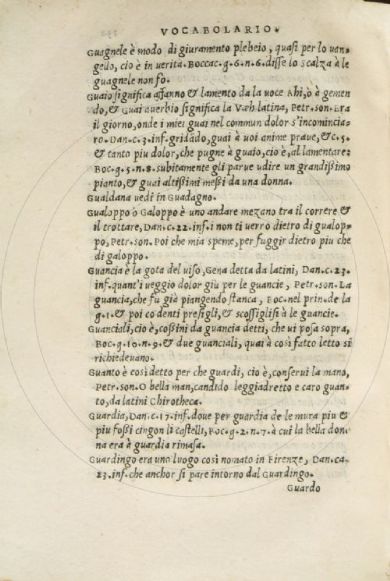 VOCABOLARIO.
Guagnele è modo di giuramento plebeio, quasi per lo uan-
gelo, cio è in uerita. Boccac. g. 6. n. 6. disse lo scalza à le
guagnele non fo.
Guaio significa affanno & lamento da la uoce Khi, ò à gemen
do, & Guai auerbio significa la Væh latina, Petr. son. Era
il giorno, onde i miei guai nel commun dolor s'incomincia-
ro. Dan. c. 3. inf. gridãdo, guai à uoi anime praue, & c. 5.
& tanto piu dolor, che pugne à guaio, cio è, al lamentare:
Boc. g. 5. n. 8. subitamente gli parue udire un grandissimo
pianto, & guai altissimi messi da una donna.
Gualdana uedi in Guadagno.
Gualoppo ò Galoppo è uno andare mezano tra il correre &
il trottare, Dan. c. 22. inf. i non ti uerro dietro di gualop-
po, Petr. son. Poi che mia speme, per fuggir dietro piu che
di galoppo.
Guancia è la gota del uiso, Gena detta da latini, Dan. c. 23.
inf. quant'i ueggio dolor giu per le guancie, Petr. son. La
guancia, che fu già piangendo stanca, Boc. nel prin. de la
g. 1. & poi co denti presigli, & scossiglisi à le guancie.
Guanciali, cio è, cossini da guancia detti, che ui posa sopra,
Boc. g. 10. n. 9. & due guanciali, quai à cosi fatto letto si
richiedeuano.
Guanto è cosi detto per che guardi, cio è, conserui la mano,
Petr. son. O bella man, candido leggiadretto e caro guan-
to, da latini Chirotheca.
Guardia, Dan. c. 17. inf. doue per guardia de le mura piu &
piu fossi cingon li castelli, Boc. g. 2. n. 7. à cui la bella don-
na era à guardia rimasa.
Guardingo era uno luogo cosi nomato in Firenze, Dan. ca-
23. inf. che anchor si pare intorno dal Guardingo.
Guardo